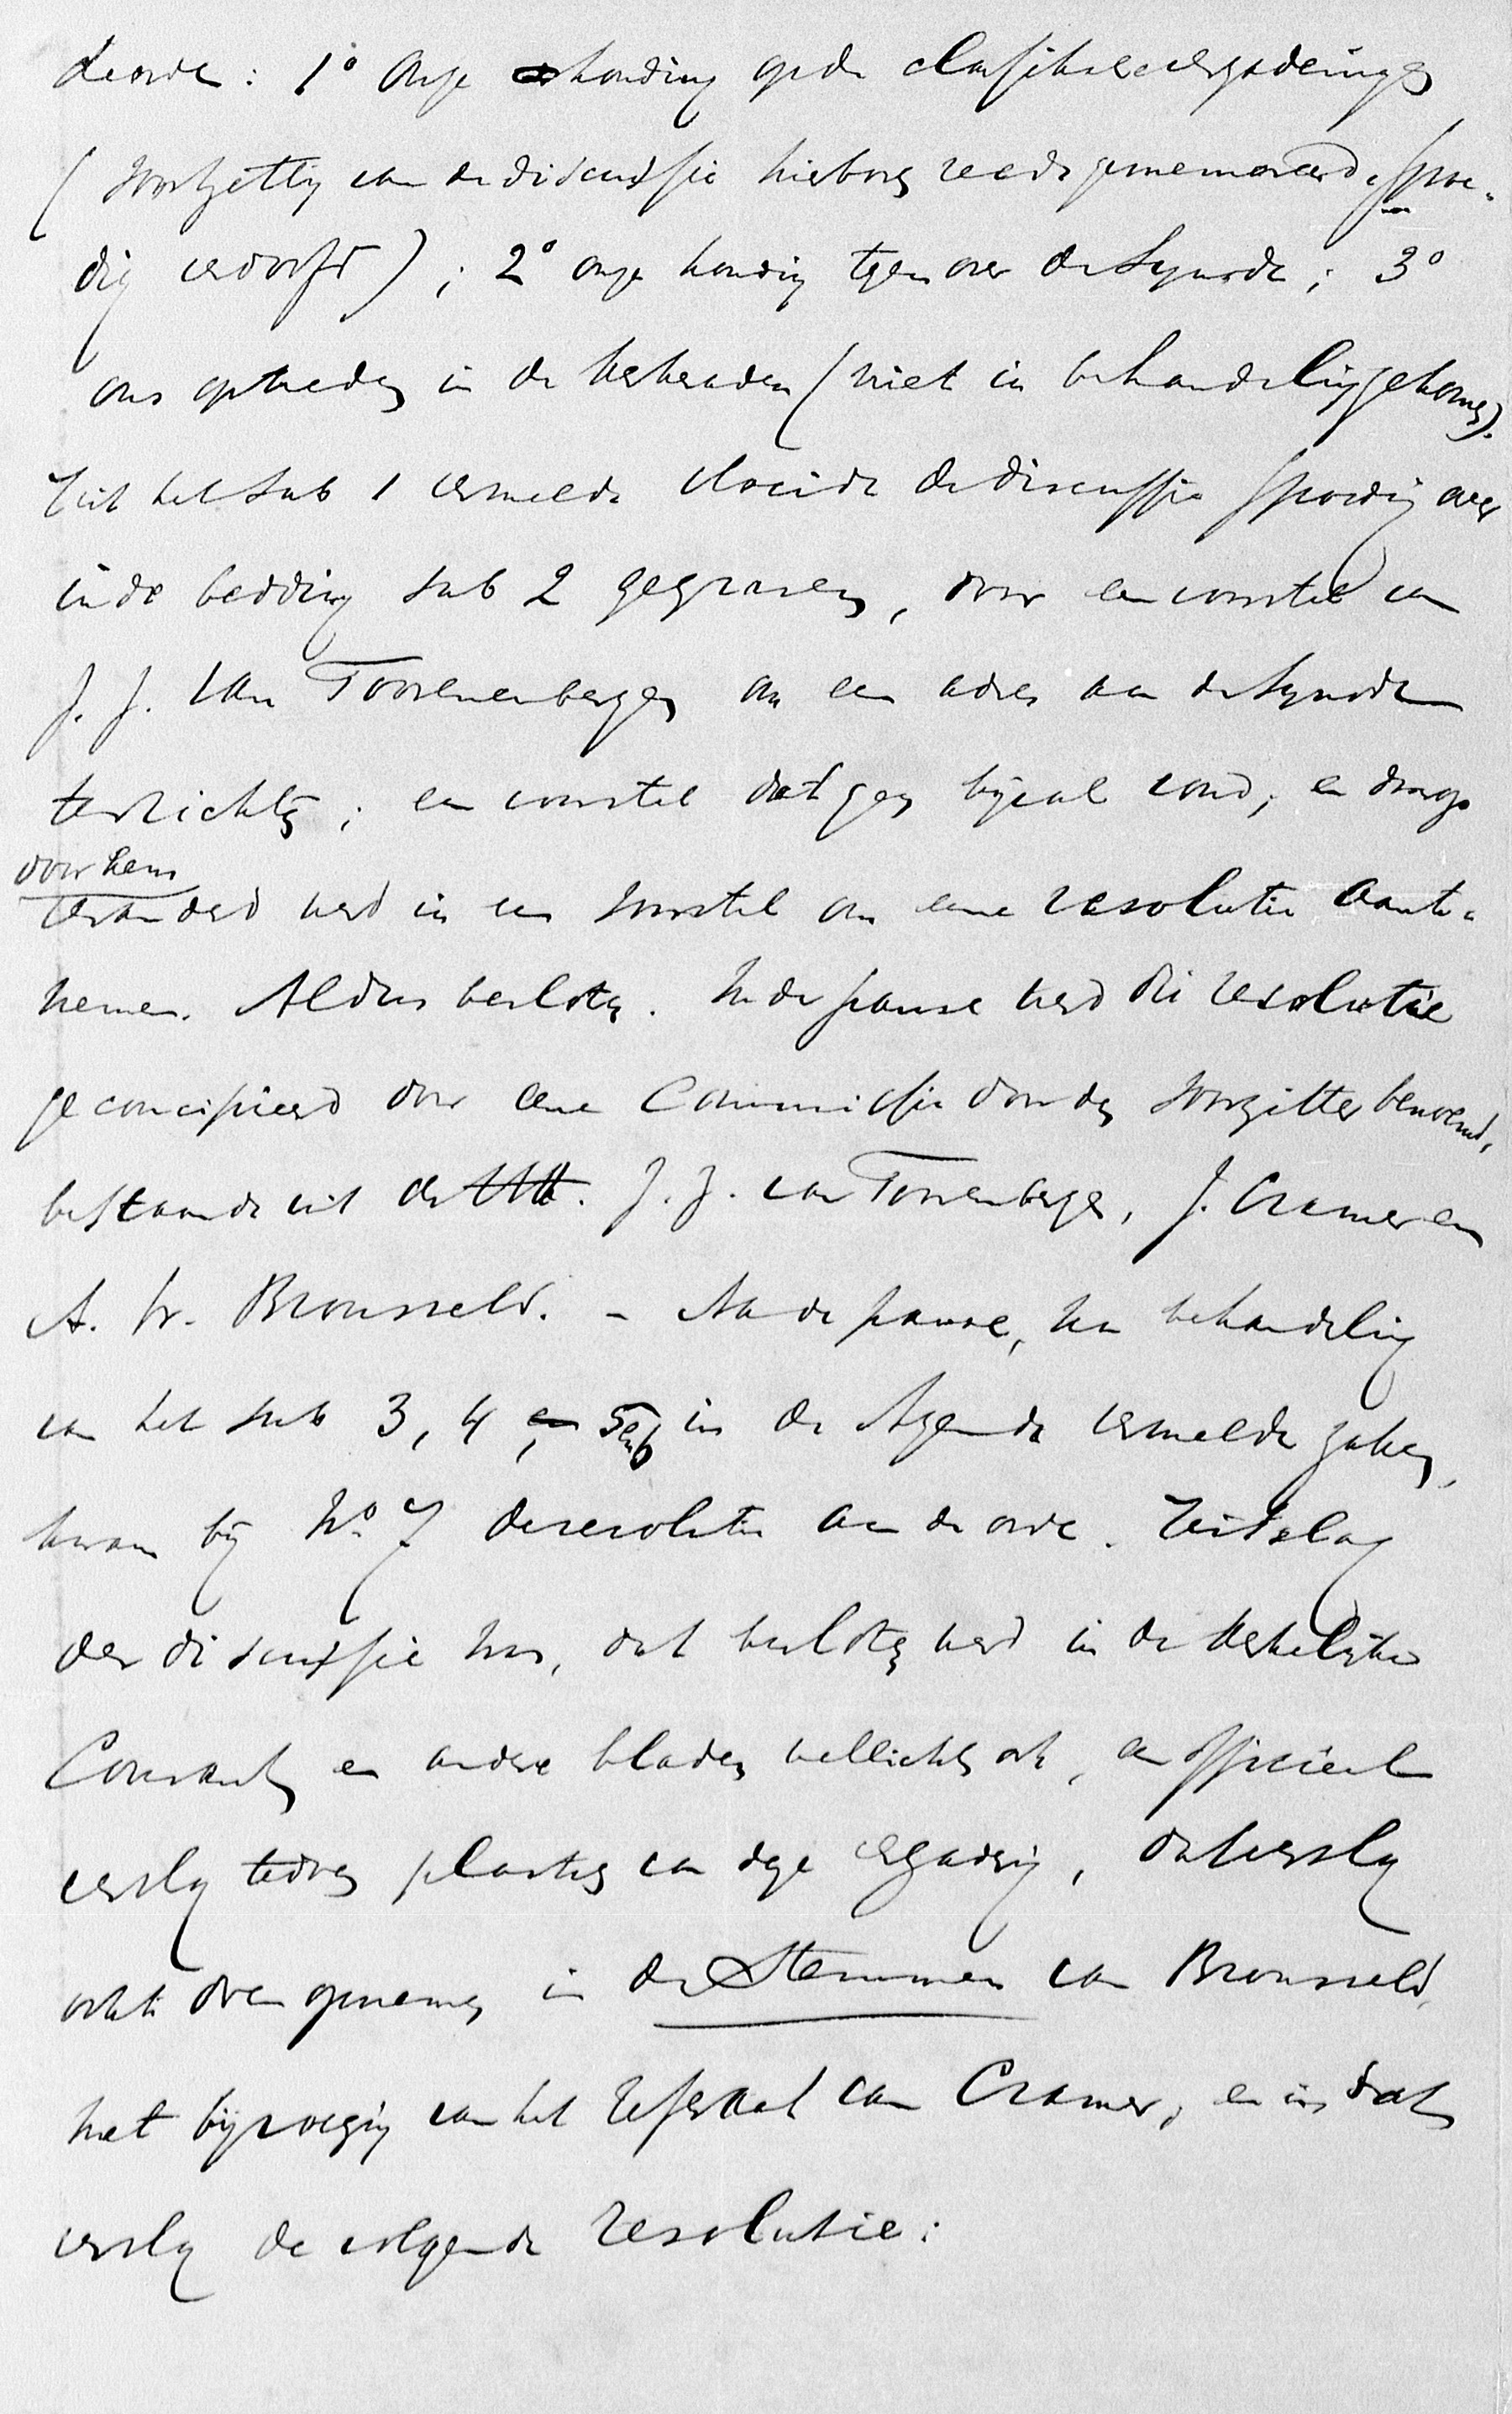 de orde: 1° Onze houding op de classikale vergaderingen
(voortzetting van de discussie hierboven reeds gememoreerd, spoe-
dig verdorfd); 2° onze houding tegenover de Synode; 3°
ons optreden in de kerkeraden (niet in behandeling gekomen).
Uit het sub 1 vermelde vloeide de discussie spoedig over
in de bedding sub 2 gegraven, door een voorstel van
J. J. van Toorenenbergen om een adres aan de Synode
te richten; een voorstel dat geen bijval vond, en
door hem
veranderd werd in een voorstel om eene resolutie aan te
nemen. Aldus besloten. In de pause werd die resolutie
geconcipieerd door eene Commissie door den Voorzitter benoemd,
bestaande uit de HH. J. J. van Toorenenbergen, J. Cramer en
A. W. Bronsveld. – Na de pause, na behandeling
van het sub 3, 4 en 5 en 6 in de Agenda vermelde zaken,
kwam bij No. 7 de resolutie aan de orde. Uitslag
der discussie was, dat besloten werd in de Kerkelijke
Courant en andere bladen wellicht ook, een officieel
verslag te doen plaatsen van deze vergadering, dat verslag
ook te doen opnemen in de Stemmen van Bronsveld,
met bijvoeging van het referaat van Cramer, en in dat
verslag de volgende resolutie: